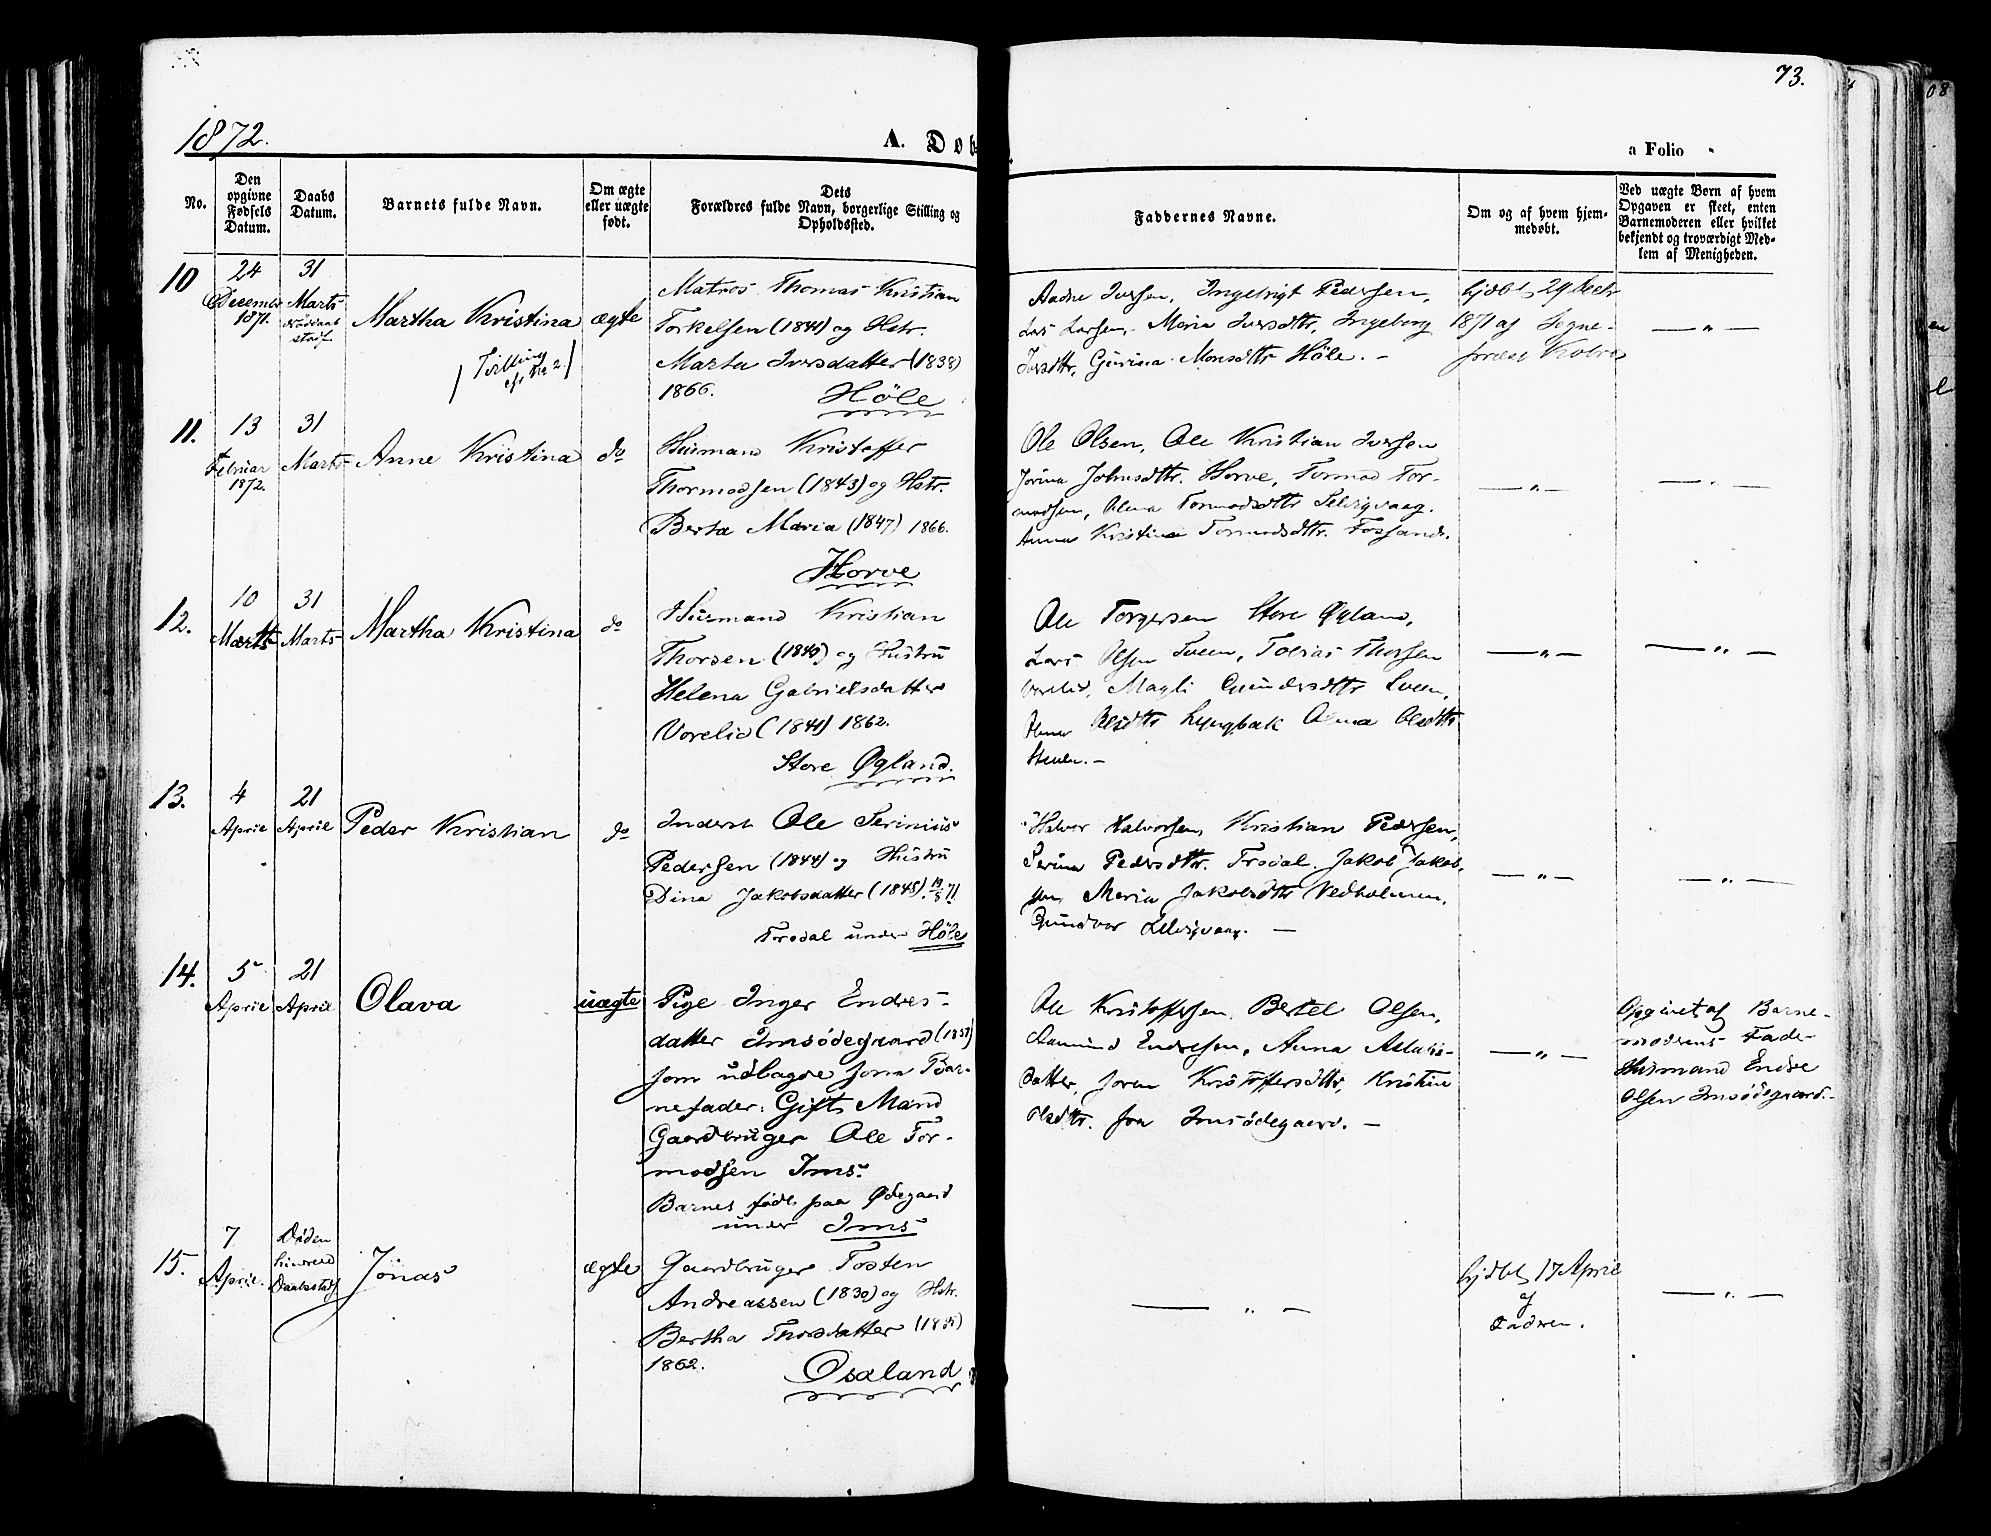 73.
1872.
A. Døb
a Folio
No.
Den opgivne Fødsels Datum.
Daabs Datum.
Barnets fulde Navn.
Om ægte eller uægte født.
Dets Forældres fulde Navn, borgerlige Stilling og Opholdssted.
Faddernes Navne.
Om og af hvem hjemmedøbt.
Ved uægte Børn af hvem Opgaven er skeet, enten Barnemoderen eller hvilket bekjendt og troværdigt Medlem af Menigheden.
10
24 December 1871.
31 Marts
Martha Kristina
ægte
Matros Thomas Kristian
Torkelsen (1841) og Hstr.
Marta Iversdatter (1838)
1866.
Høle
Aadne Iversen, Ingebrigt Pedersen,
Lars Larsen, Maria Iversdttr, Ingeborg
Iversdttr, Gurina Monsdttr Høle. –
hjdbt 29 Decbr
1871 af Sogne-
— " —
11.
13 Februar 1872.
31 Marts
Anne Kristina
do
Husmand Kristoffer
Thormodsen (1843) og Hstr.
Berta Maria (1847) 1866.
Horve
Ole Olsen, Ole Kristian Iversen
Jorina Johnsdttr. Horve, Tormod Tor-
modsen, Olena Tormodsdttr Selvigvaag.
Anna Kristina Tormodsdttr. Fossand.
— " —
— " —
12.
10 Marts
31 Marts
Martha Kristina
do
Husmand Kristian
Thorsen (1840) og Hustru
Helena Gabrielsdatter
Vorelid (1841) 1862.
Store Øgland.
Ole Torgersen Store Øgland,
Lars Olsen Sveen, Tobias Thorsen
Vorelid, Magli Gundersdttr Sveen,
Olsdttr Lyngbak Anna Olsdttr
— " —
— " —
13.
4 April
21 April
Peder Kristian
do
Inderst Ole Serinius
Pedersen (1844) og Hustru
Dina Jakobsdatter (1848). 19/3 71
Trodal under Høle
Halvor Halvorsen, Kristian Pedersen,
Serina Pedersdttr. Trodal. Jakob Jakob-
sen, Maria Jakobsdttr Vedholmen,
Gundvor Selvigvaag. —
— " —
— " —
14.
5 April
21 April
Olava
uægte
Pige Inger Endres-
datter Imsødegaard (1853)
som udlagde som Bar-
nefader: Gift Mand
Gaardbruger Ole Tor-
modsen Ims.
Barnet født paa Ødegaard
under Ims
Ole Kristoffersen, Bertel Olsen,
Aamund Endresen, Anna Aslaks-
datter, Joren Kristoffersdttr, Kristine
Olsdttr. fra Imsødegaard. –
— " —
Opgivet af Barne-
moderens Fader
Husmand Endre
Olsen Imsødegaard.
15.
7 April.
Døden hindrede Daabstadf.
Jonas
ægte
Gaardbruger Tosten
Andreassen (1830) og Hstr.
Bertha Thorsdatter
1862.
Osaland
— " —
hjdbt 17 April
af
Faderen.
— " —